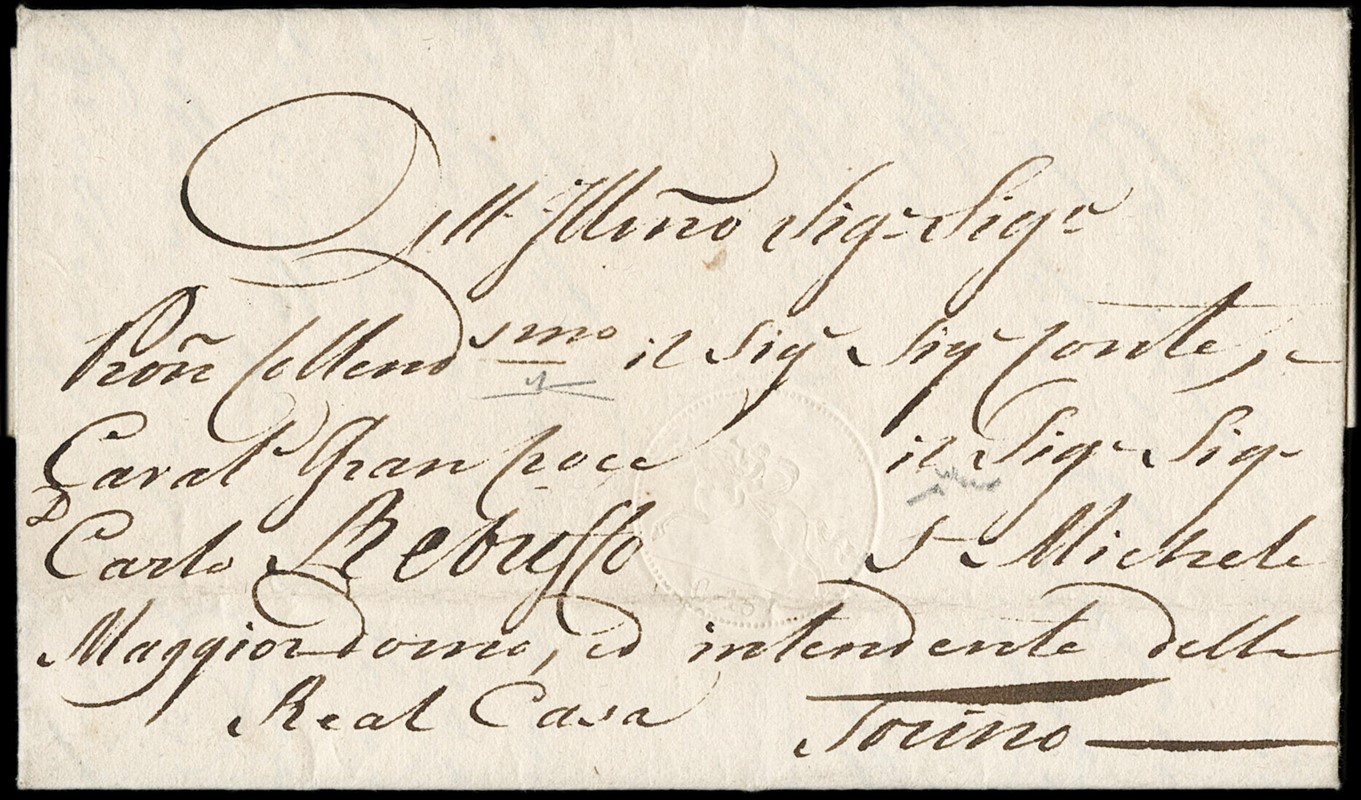 All Illmo Sigr Sigr
Pron Collend smo il Sigr Sigr Conte, e
Cavalr Gran Croce il Sigr Sigr
D Carlo Rebuffo S Michele
Maggiordomo, ed intendente della
Real Casa Torino